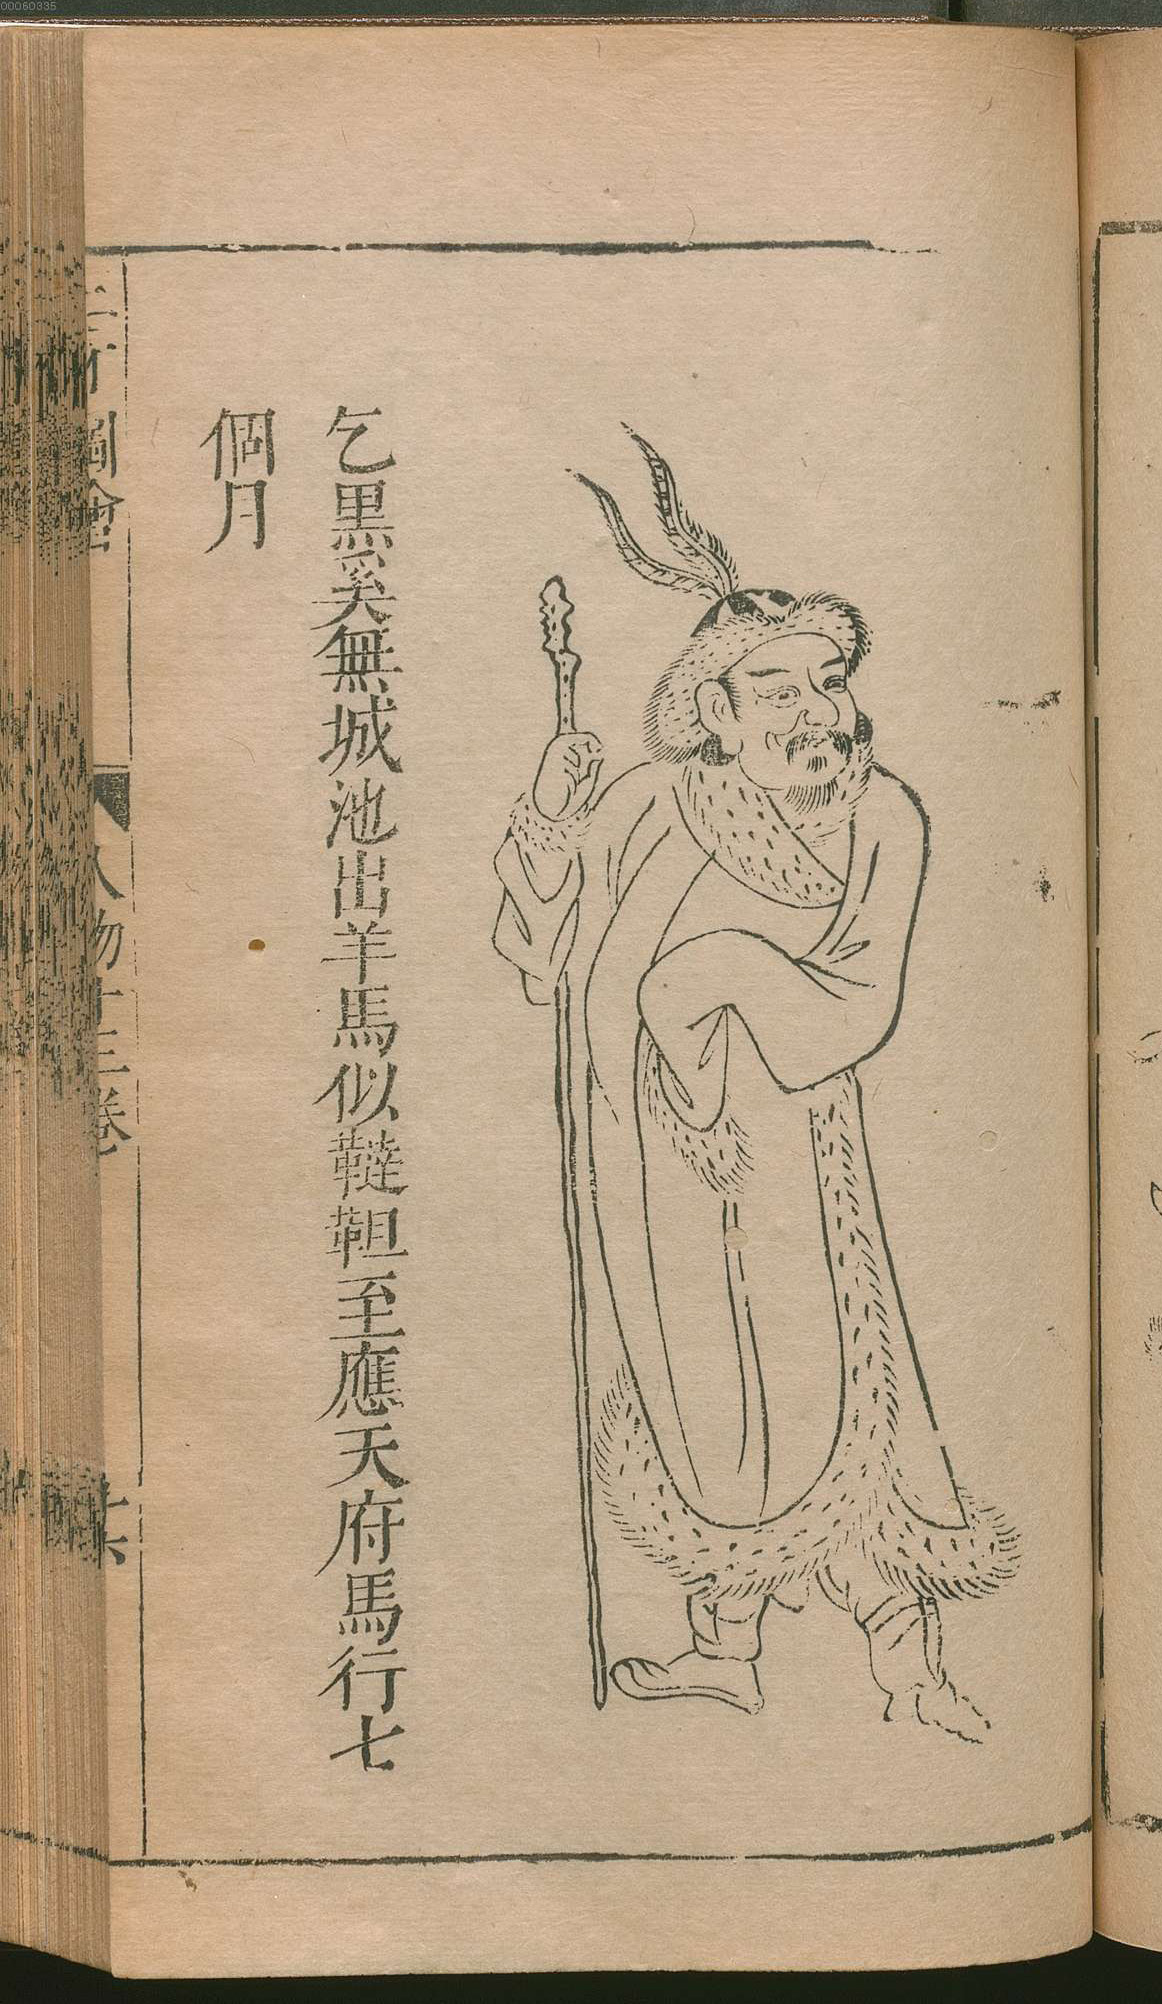 00060335
乞黒奚無城池出羊馬似韃靼至應天府馬行七
個月
三才圖會
人物十三卷